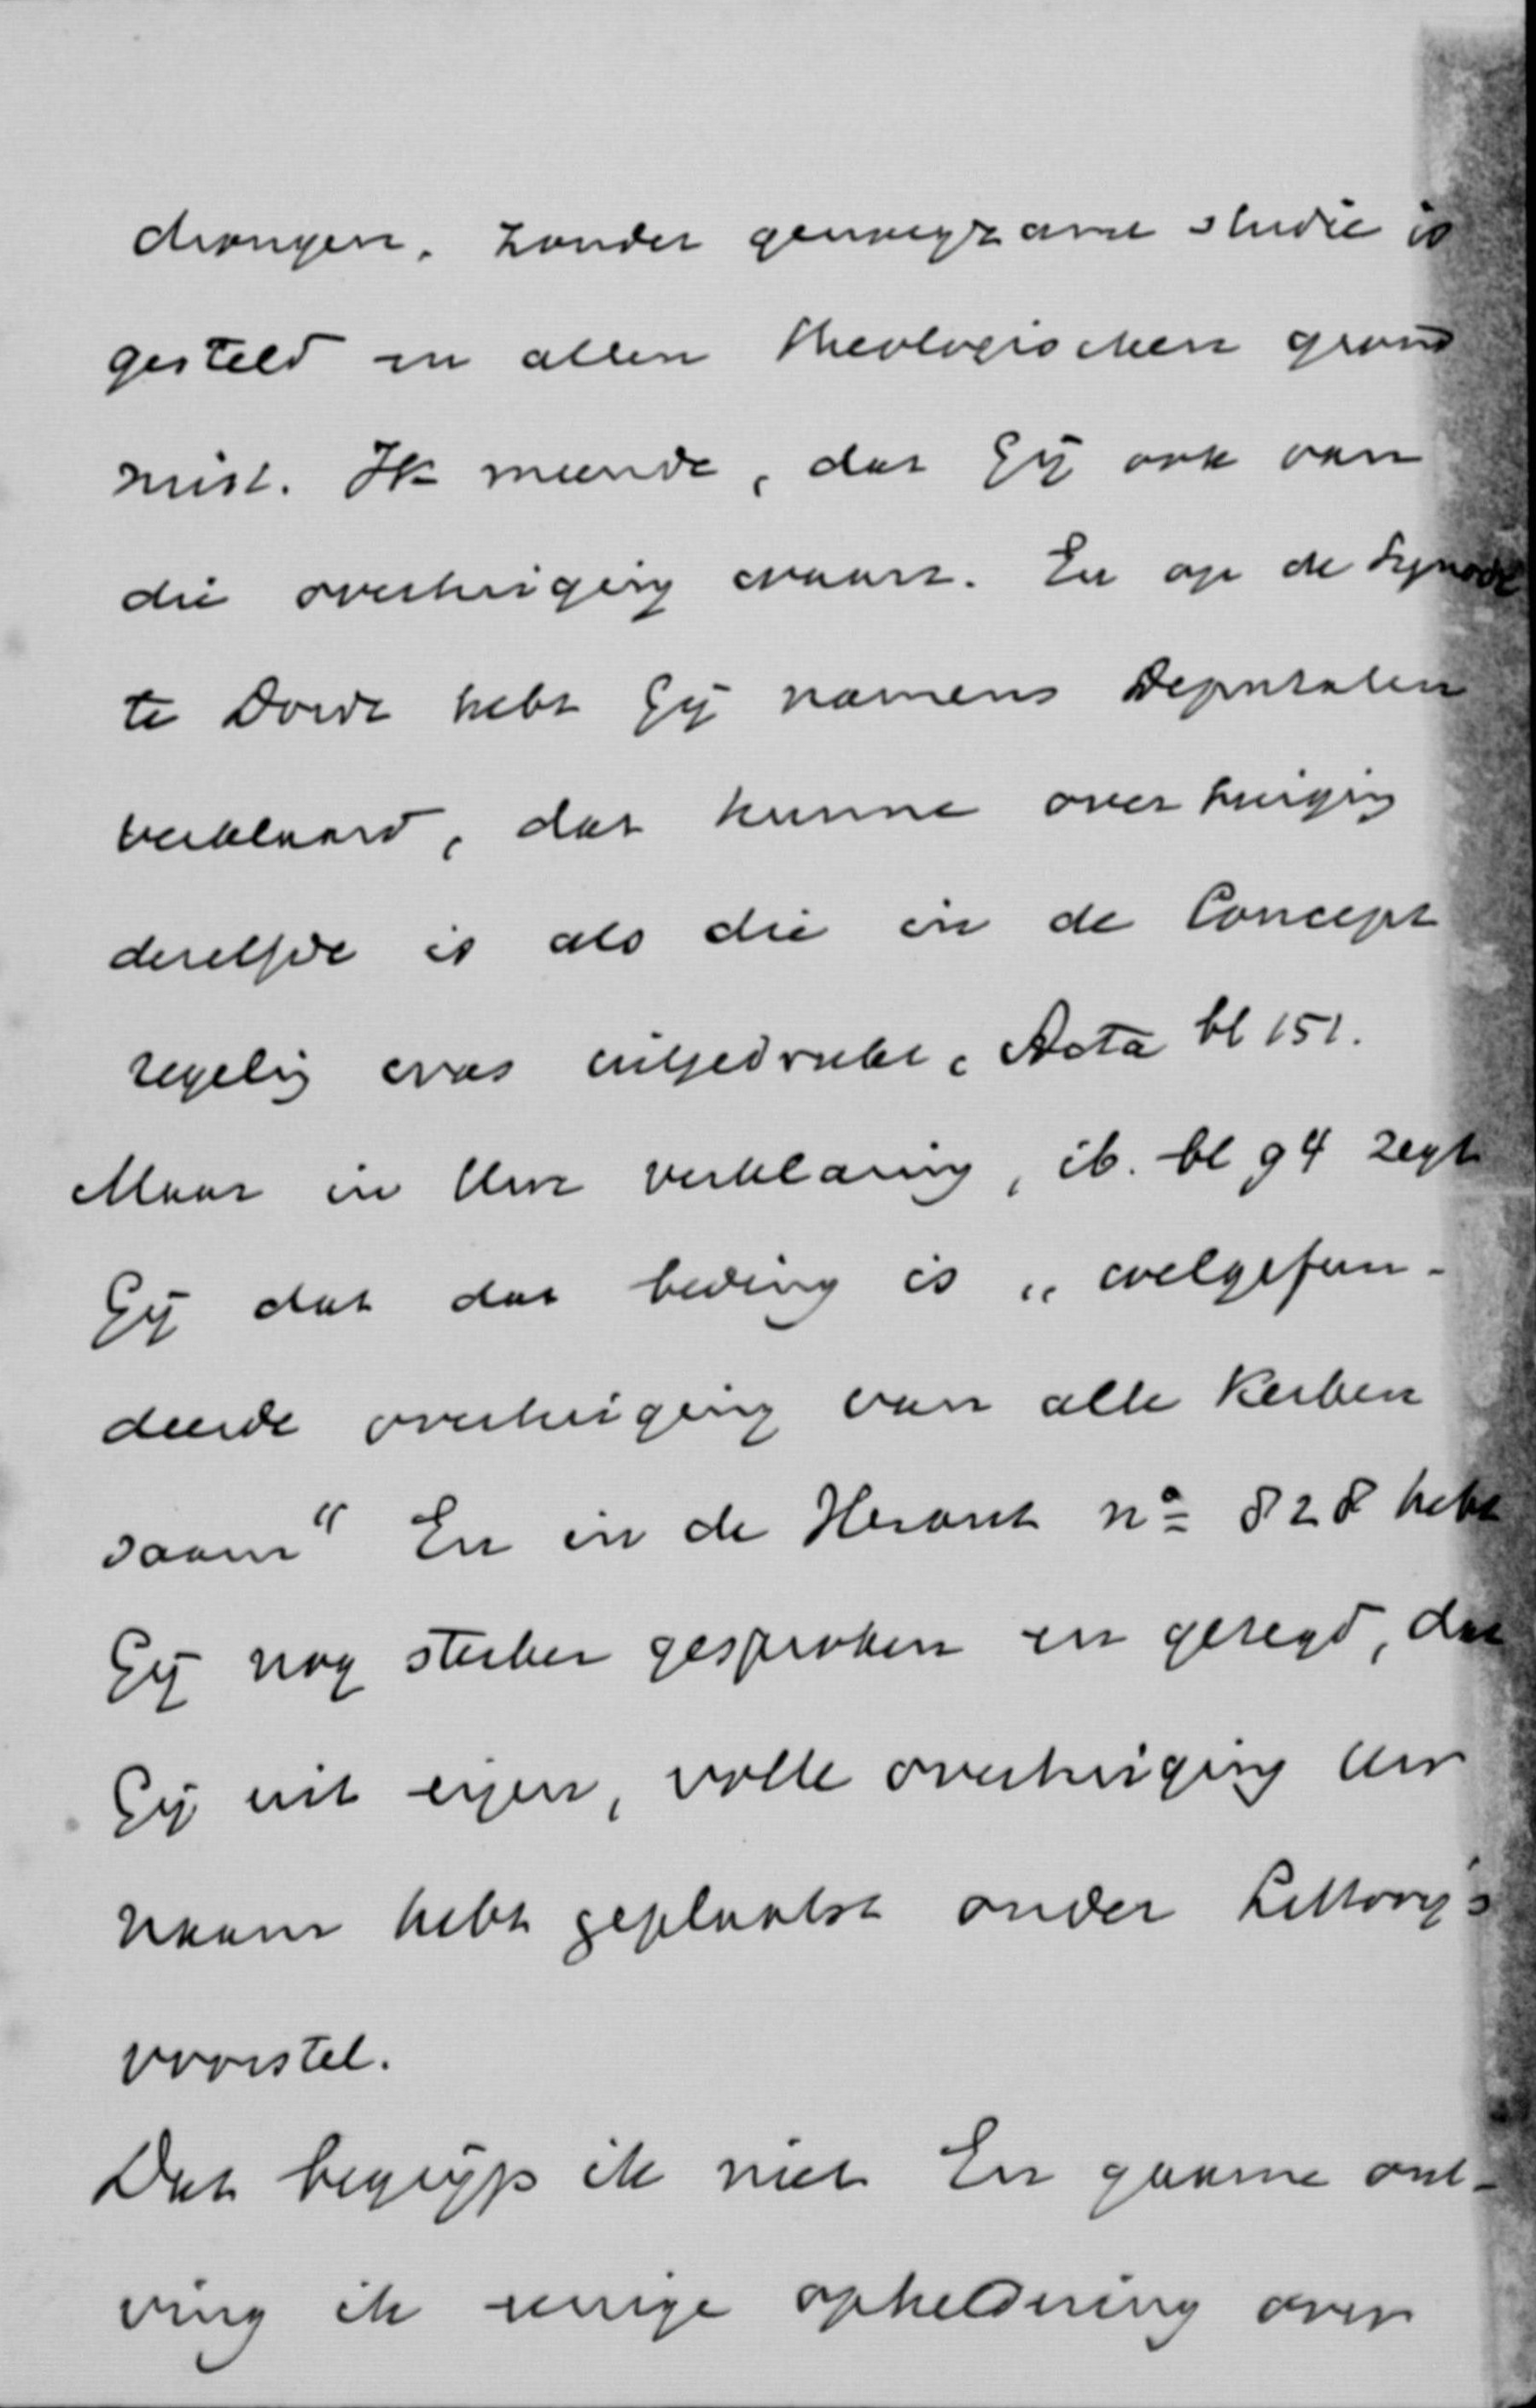 drongen, zonder genoegzame studie is
gesteld en allen theologischen grond
mist. Ik meende, dat Gij ook van
die overtuiging waart. En op de Synode
te Dordt hebt Gij namens Deputaten
verklaard, dat hunne overtuiging
dezelfde is als die in de Concept
regeling was uitgedrukt, Acta bl 151.
Maar in Uwe verklaring, ib. bl 94 zegt
Gij dat dat beding is „welgefun-
deerde overtuiging van alle kerken
saam“ En in de Heraut no 828 hebt
Gij nog sterker gesproken en gezegd, dat
Gij uit eigen, volle overtuiging Uw
naam hebt geplaatst onder Littooy's
voorstel.
Dat begrijp ik niet En gaarne ont-
ving ik eenige opheldering over